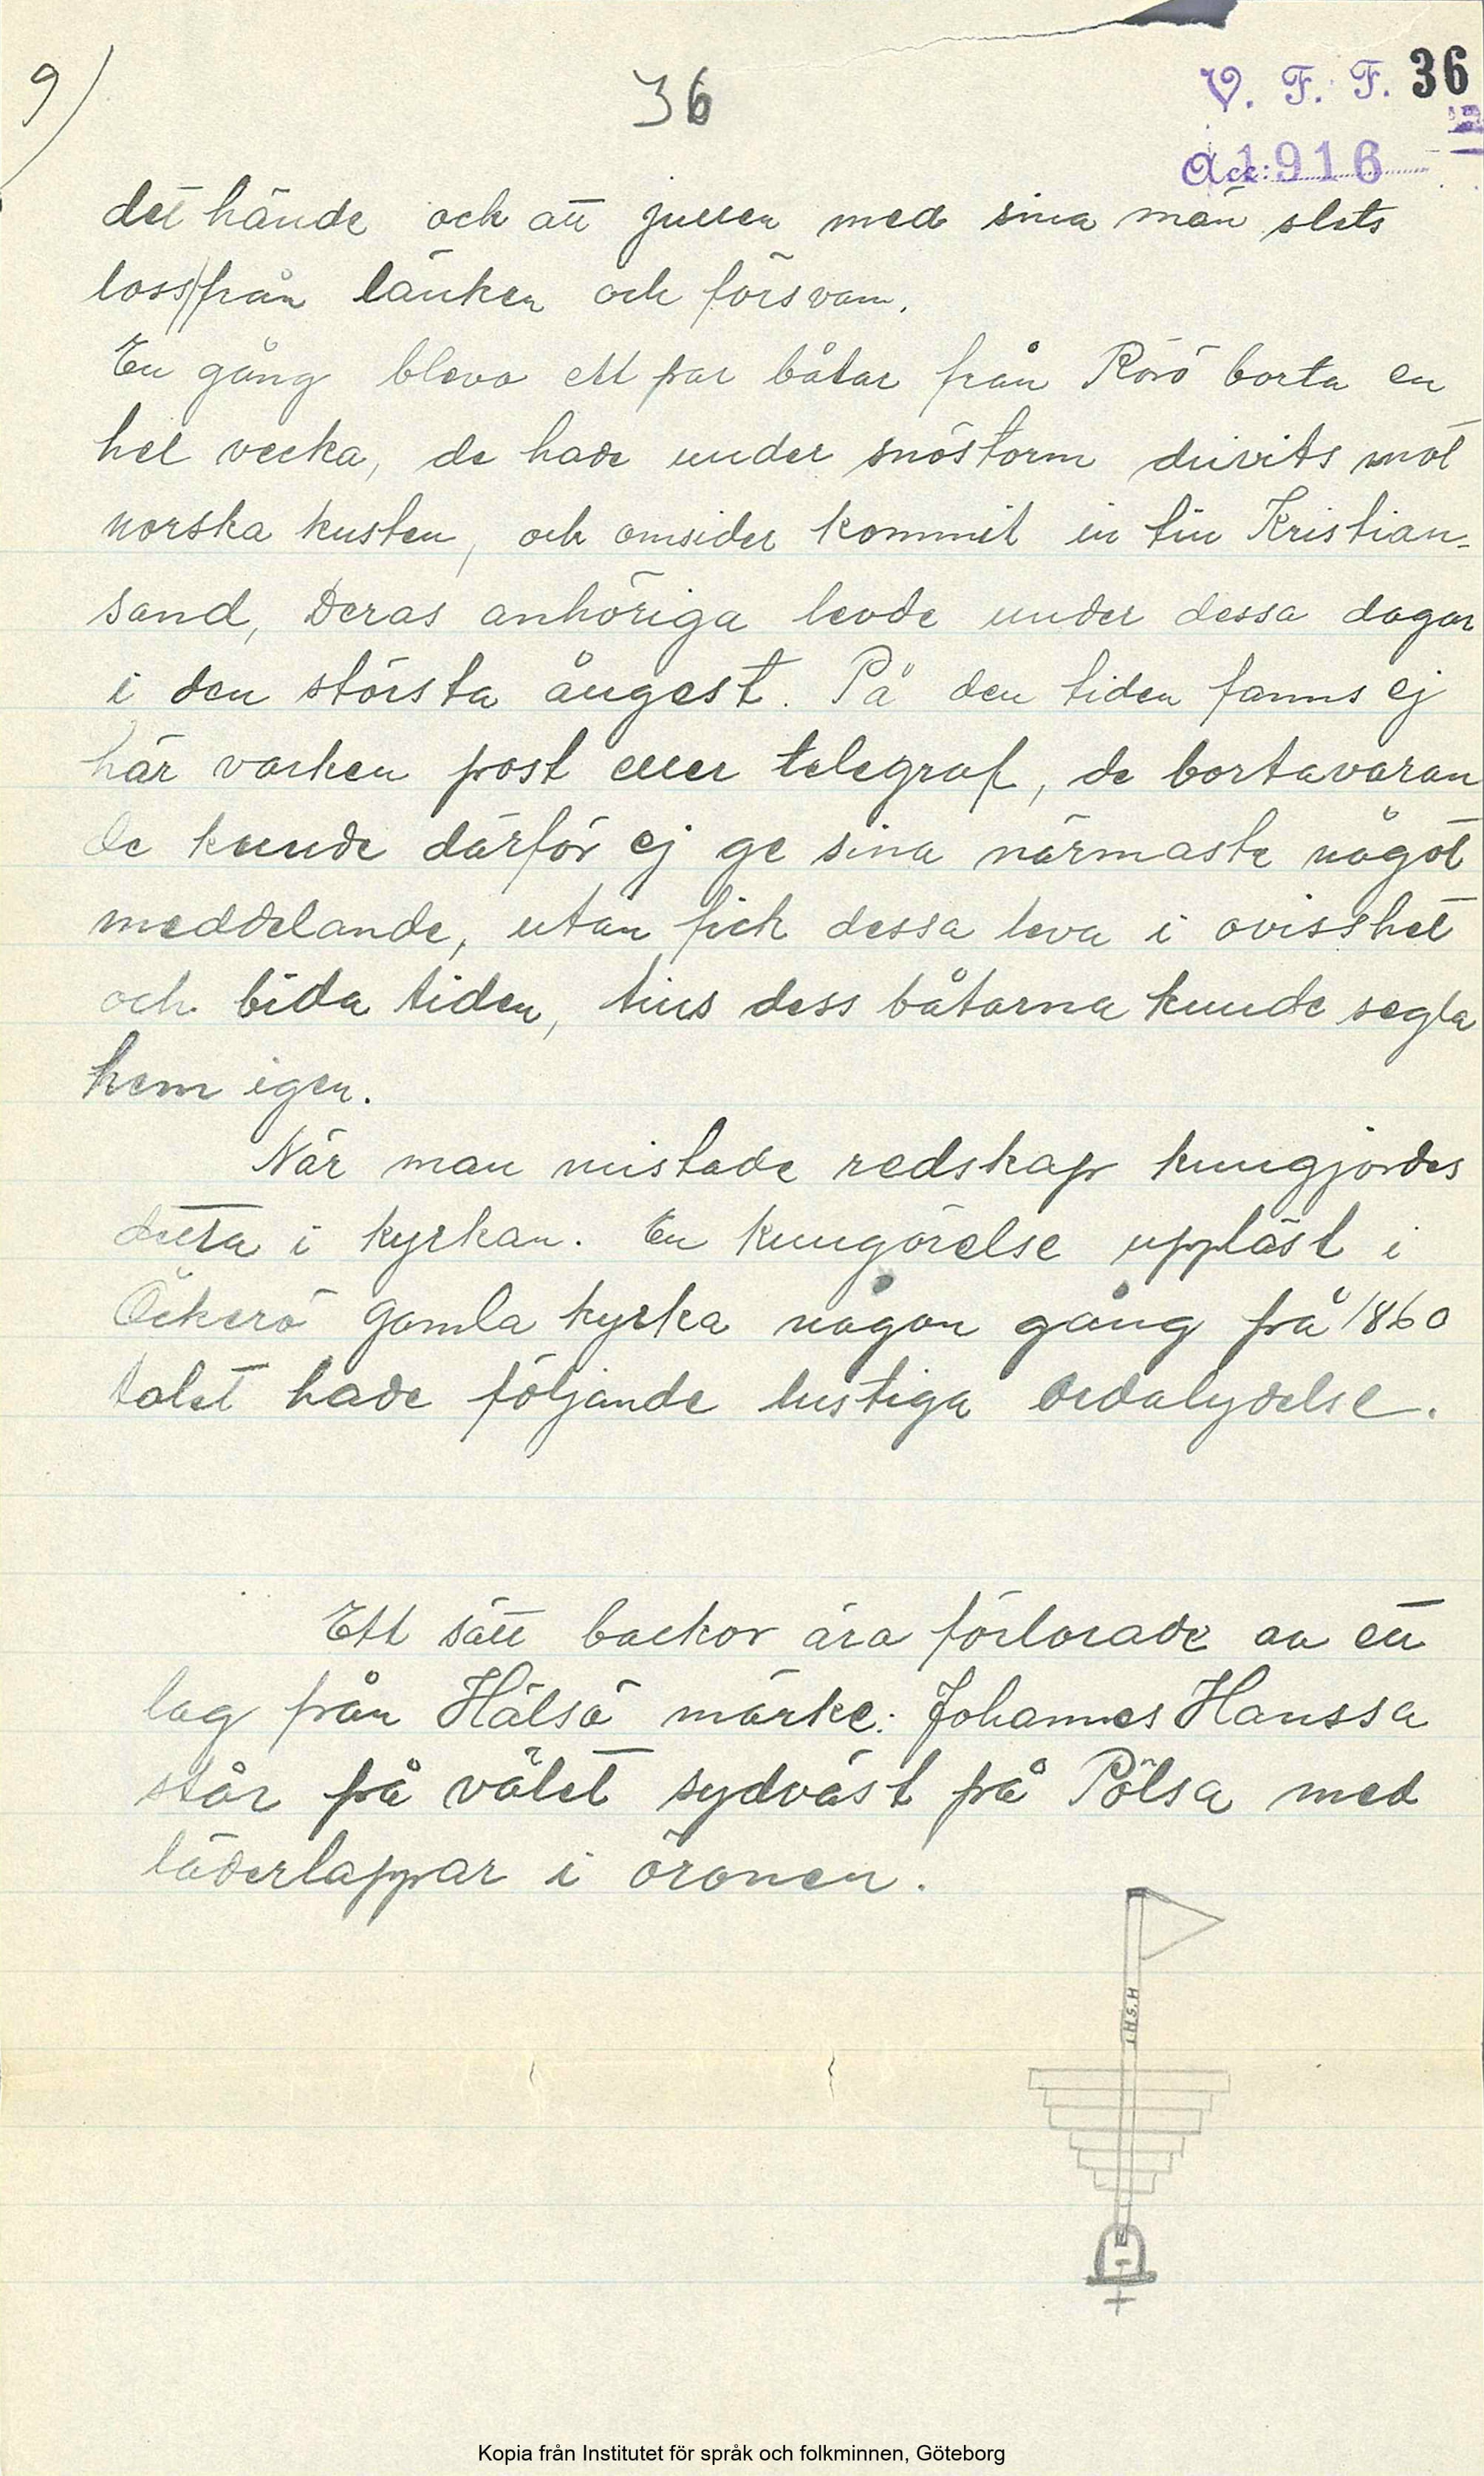 9)
36
V. F. F. 36
Acc: 1916
det hände och att jullen med sina män slets
loss från länken och försvann.
En gång blevo ett par båtar från Rörö borta en
hel vecka, de hade under snöstorm drivits mot
norska kusten, och omsider kommit in till Kristian-
sand, Deras anhöriga levde under dessa dagar
i den största ångest. På den tiden fanns ej
här varken post eller telegraf, de bortavaran
de kunde därför ej ge sina närmaste något
meddelande, utan fick dessa leva i ovisshet
och bida tiden, tills dess båtarna kunde segla
hem igen.
När man mistade redskap kungjordes
detta i kyrkan. En kungörelse uppläst i
Öckerö gamla kyrka någon gång på 1860
talet hade följande lustiga ordalydelse.
Ett sätt backor ära förlorade av ett
lag från Hälsö märke: Johannes Hanssa
står på vålet sydväst på Pölsa med
läderlappar i öronen.
I H S. H
Kopia från Institutet för språk och folkminnen, Göteborg